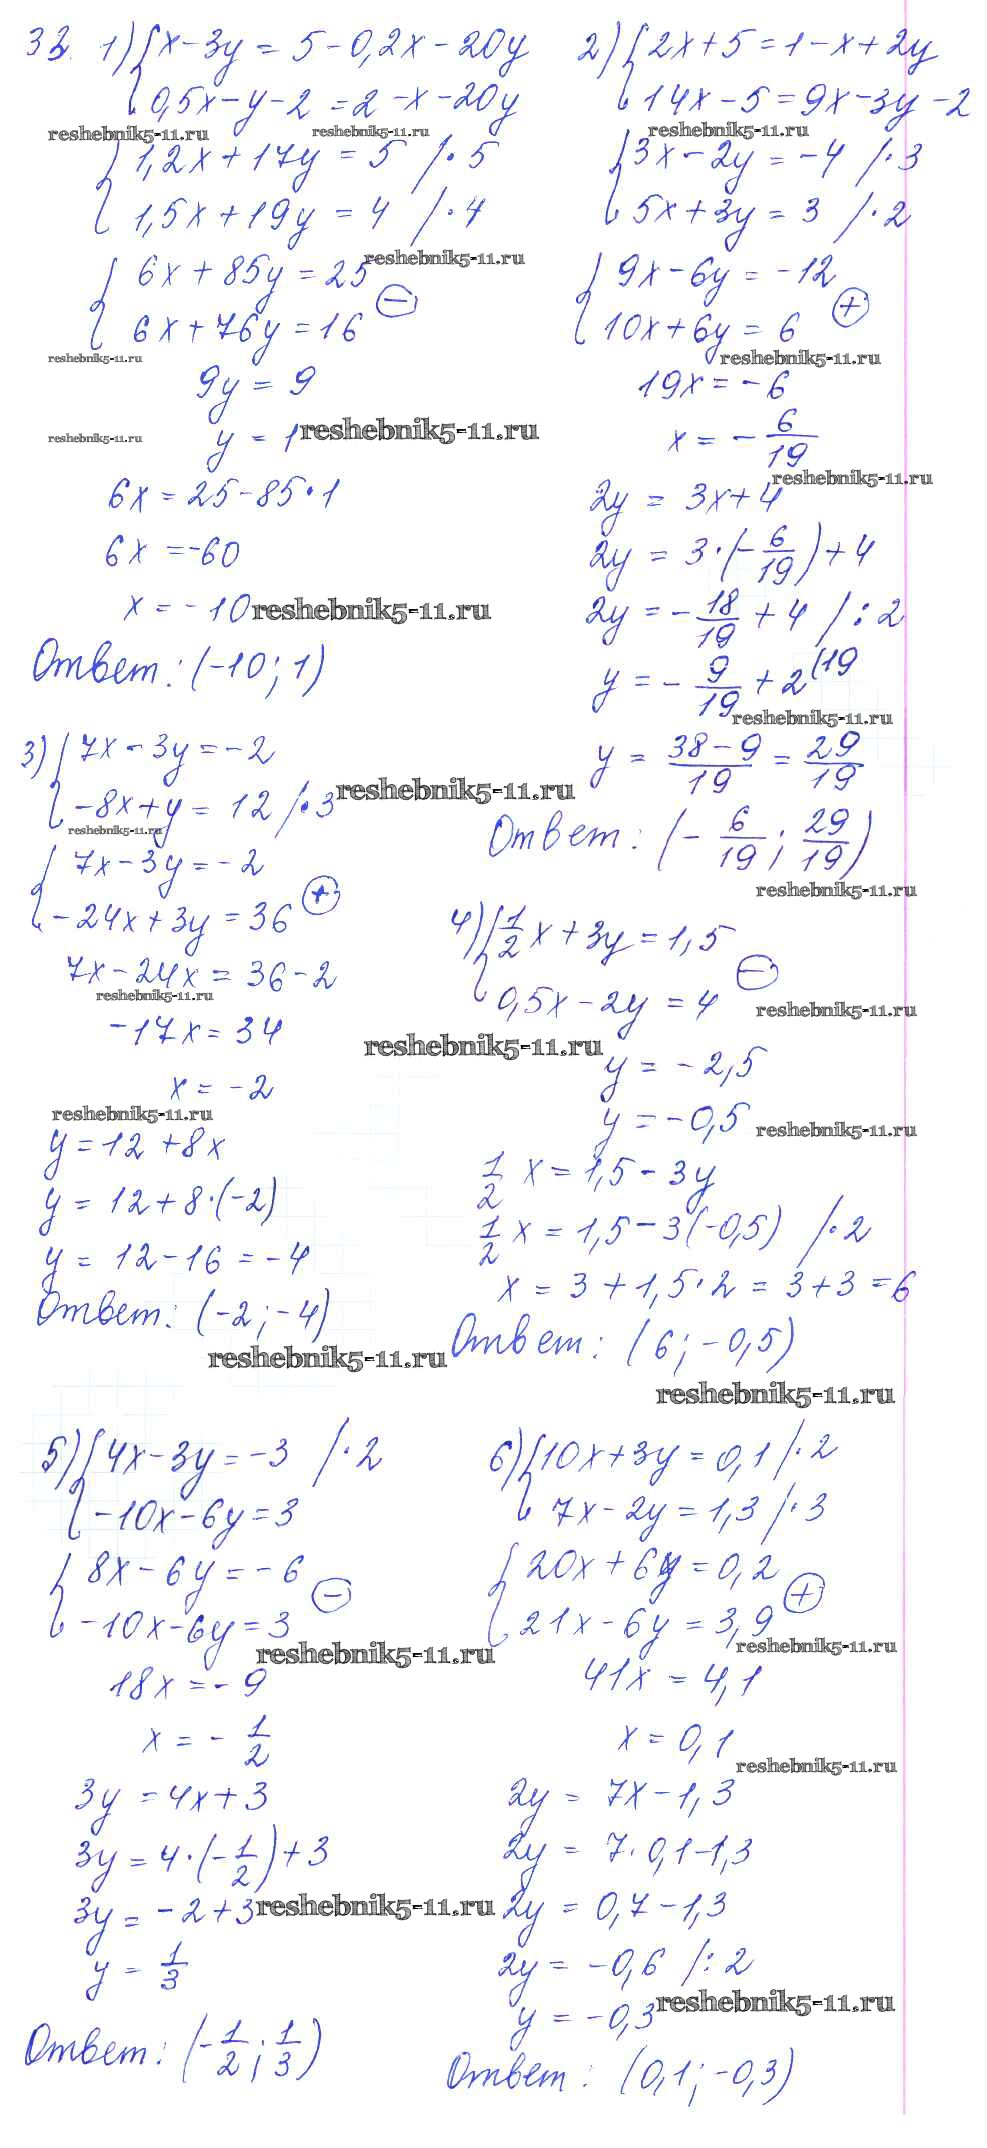 33. 1) { x - 3y = 5 - 0,2x - 20y
0,5x - y - 2 = 2 - x - 20y
reshebnik5-11.ru reshebnik5-11.ru
{ 1,2x + 17y = 5 /·5
1,5x + 19y = 4 /·4
reshebnik5-11.ru
{ 6x + 85y = 25
6x + 76y = 16 ⊖
reshebnik5-11.ru
9y = 9
reshebnik5-11.ru
y = 1 reshebnik5-11.ru
6x = 25 - 85·1
6x = -60
x = -10 reshebnik5-11.ru
Ответ: (-10; 1)
2) { 2x + 5 = 1 - x + 2y
14x - 5 = 9x - 3y - 2
reshebnik5-11.ru
{ 3x - 2y = -4 /·3
5x + 3y = 3 /·2
{ 9x - 6y = -12
10x + 6y = 6 ⊕
reshebnik5-11.ru
19x = -6
x = - 6/19
reshebnik5-11.ru
2y = 3x + 4
2y = 3·(- 6/19) + 4
2y = - 18/19 + 4 /:2
y = - 9/19 + 2 (19
reshebnik5-11.ru
y = (38 - 9)/19 = 29/19
Ответ: (- 6/19; 29/19)
reshebnik5-11.ru
3) { 7x - 3y = -2
-8x + y = 12 /·3 reshebnik5-11.ru
reshebnik5-11.ru
{ 7x - 3y = -2
-24x + 3y = 36 ⊕
7x - 24x = 36 - 2
reshebnik5-11.ru
-17x = 34
reshebnik5-11.ru
x = -2
reshebnik5-11.ru
y = 12 + 8x
y = 12 + 8·(-2)
y = 12 - 16 = -4
Ответ: (-2; -4)
reshebnik5-11.ru
4) { 1/2 x + 3y = 1,5
0,5x - 2y = 4 ⊖
reshebnik5-11.ru
y = -2,5
y = -0,5 reshebnik5-11.ru
1/2 x = 1,5 - 3y
1/2 x = 1,5 - 3(-0,5) /·2
x = 3 + 1,5·2 = 3 + 3 = 6
Ответ: (6; -0,5)
reshebnik5-11.ru
5) { 4x - 3y = -3 /·2
-10x - 6y = 3
{ 8x - 6y = -6
-10x - 6y = 3 ⊖
reshebnik5-11.ru
18x = -9
x = - 1/2
3y = 4x + 3
3y = 4·(- 1/2) + 3
3y = -2 + 3 reshebnik5-11.ru
y = 1/3
Ответ: (- 1/2; 1/3)
6) { 10x + 3y = 0,1 /·2
7x - 2y = 1,3 /·3
{ 20x + 6y = 0,2
21x - 6y = 3,9 ⊕
reshebnik5-11.ru
41x = 4,1
x = 0,1
reshebnik5-11.ru
2y = 7x - 1,3
2y = 7·0,1 - 1,3
2y = 0,7 - 1,3
2y = -0,6 /:2
y = -0,3 reshebnik5-11.ru
Ответ: (0,1; -0,3)